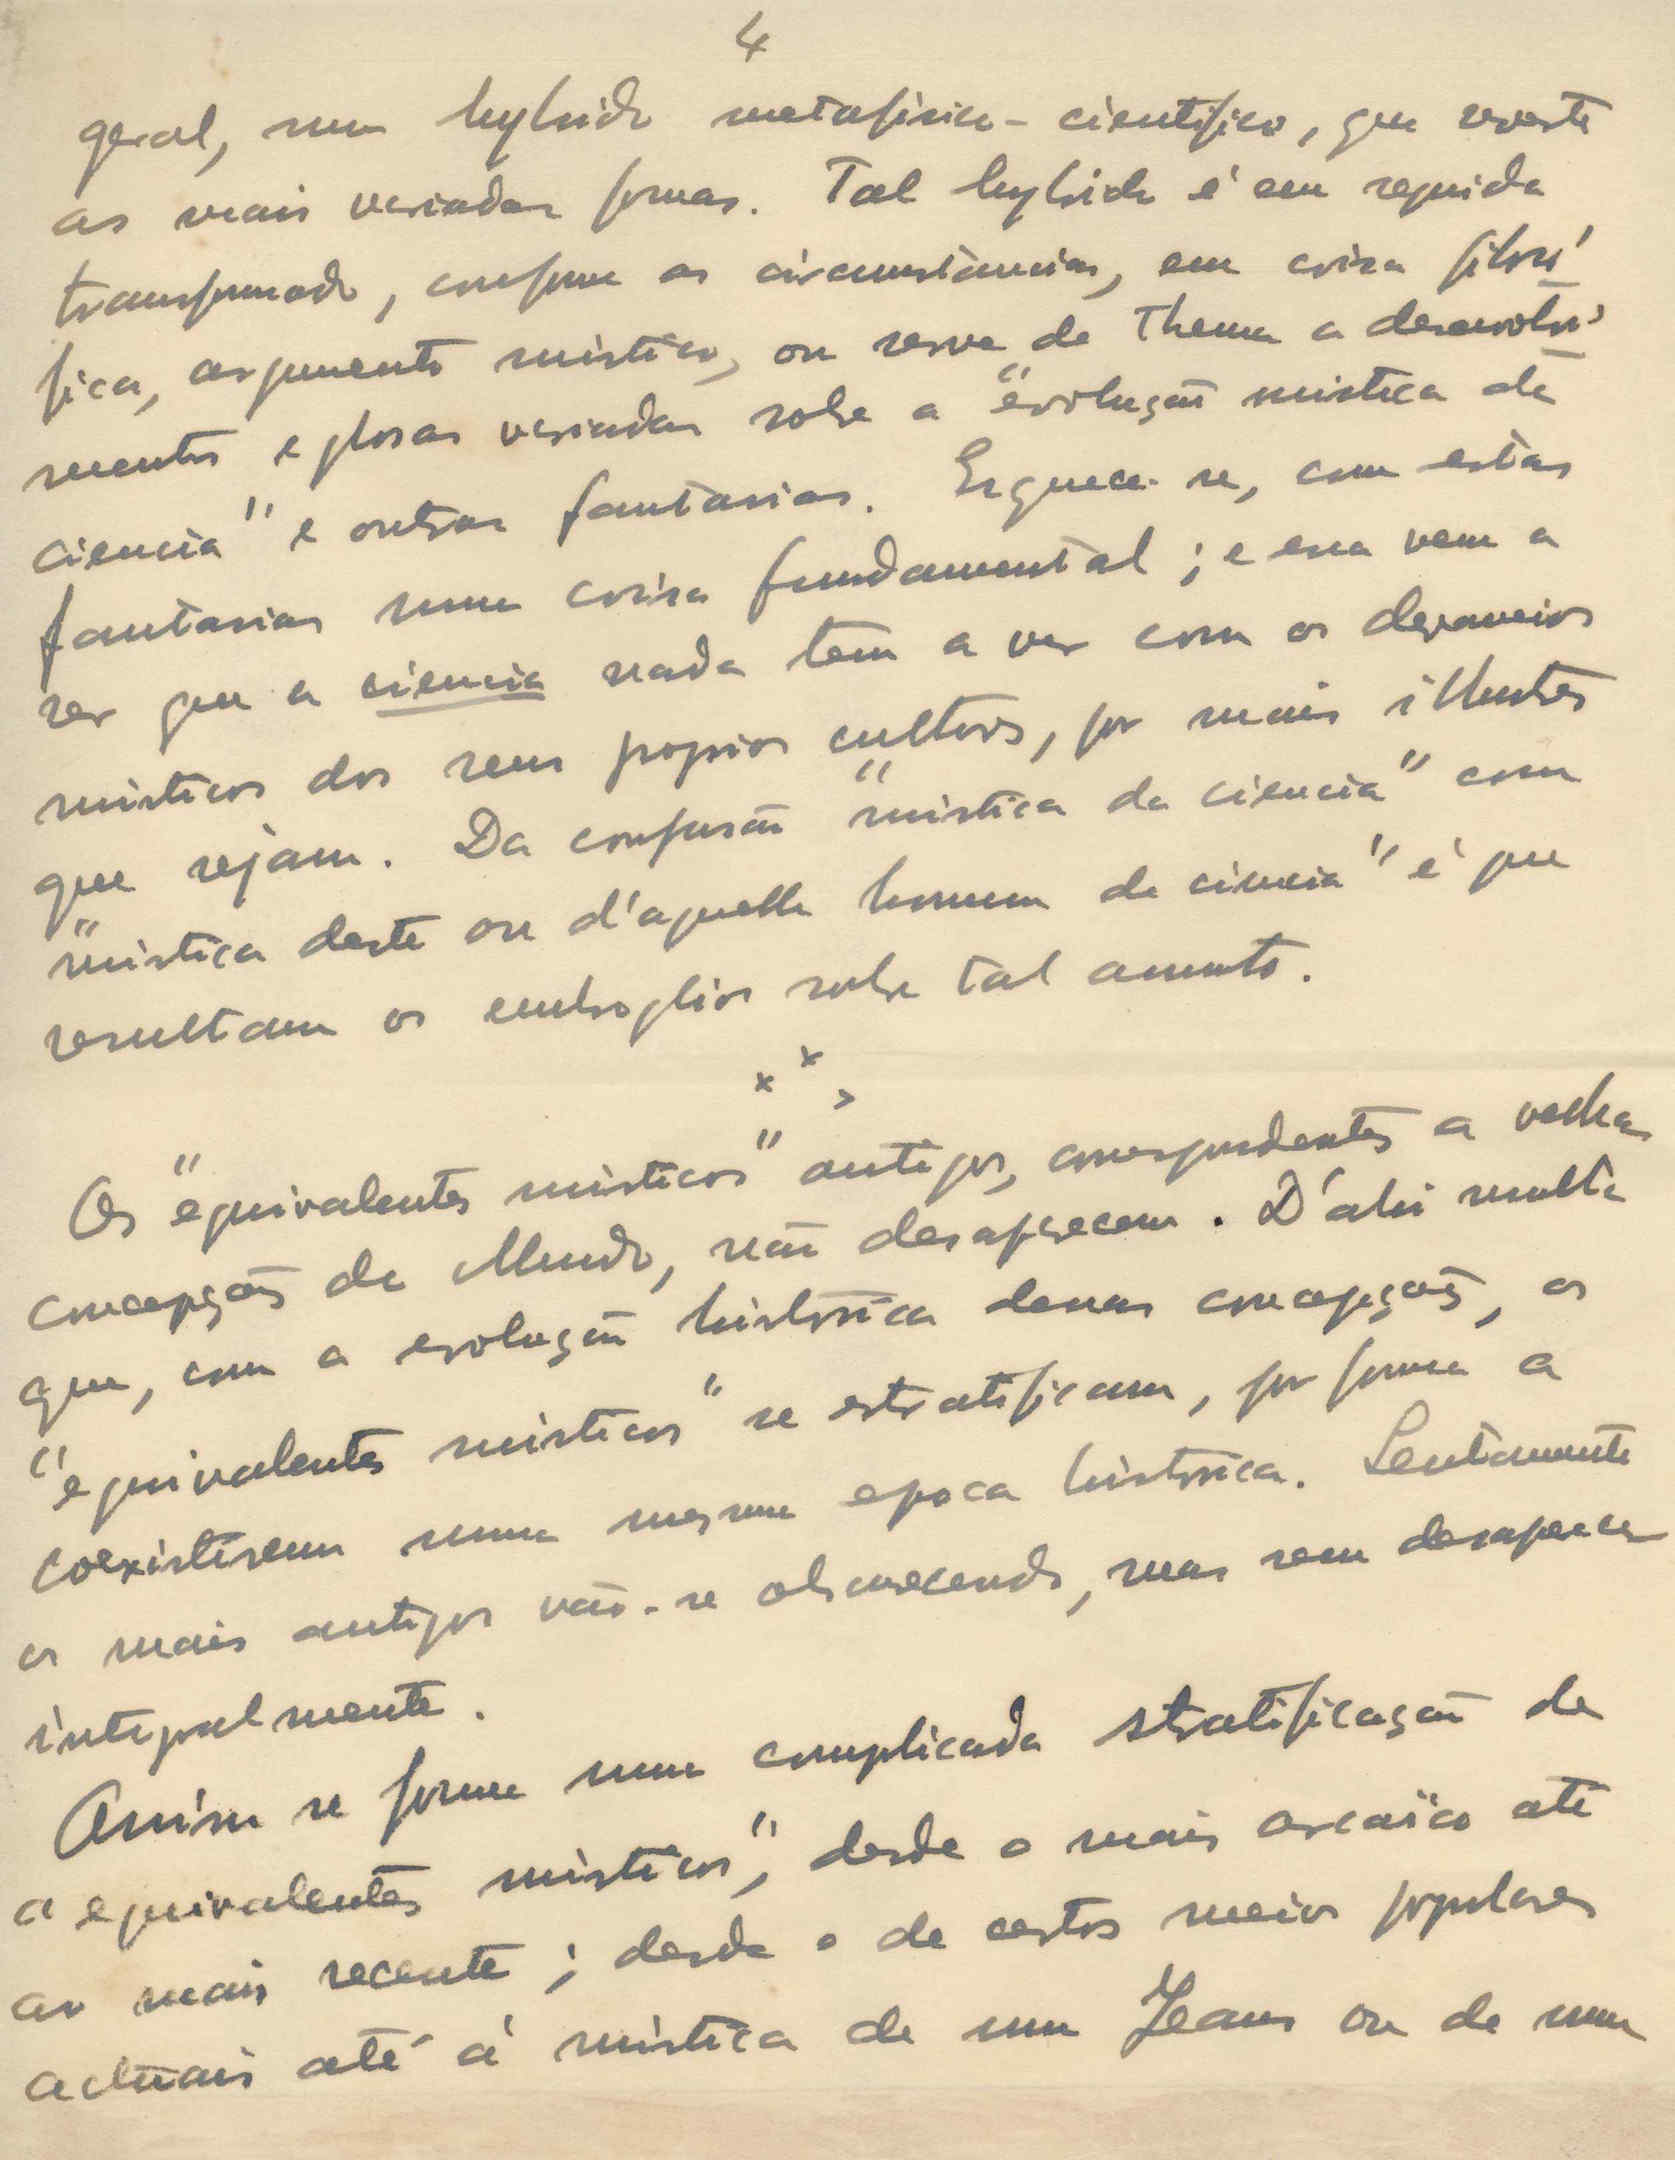 4
geral, um hybrido metafisico-cientifico, que reveste
as mais variadas formas. Tal hybrido é em seguida
transformado, conforme as circumstancias, em coisa filosó
fica, argumento mistico, ou serve de thema a desenvolvi-
mentos e glosas variadas sobre a "evolução mistica da
ciencia" e outras fantasias. Esquece-se, com estas
fantasias uma coisa fundamental; e essa vem a
ser que a ciencia nada tem a ver com os devaneios
misticos dos seus proprios cultores, por mais illustres
que sejam. Da confusão "mistica da ciencia" com
"mistica deste ou d'aquelle homem de ciencia" é que
resultam os embroglios sobre tal assunto.
x x x
Os "equivalentes misticos" antigos, correspondentes a velhas
concepções do Mundo, não desaparecem. D'ahi resulta
que, com a evolução histórica dessas concepções, os
"equivalentes misticos" se estratificam, por forma a
coexistirem numa mesma epoca histórica. Lentamente
os mais antigos vão-se obscurecendo, mas sem desaparecer
integralmente.
Assim se forma uma complicada stratificação de
"equivalentes misticos", desde o mais arcaïco até
ao mais recente; desde o de certos meios populares
actuais até á mistica de um Jeans ou de um